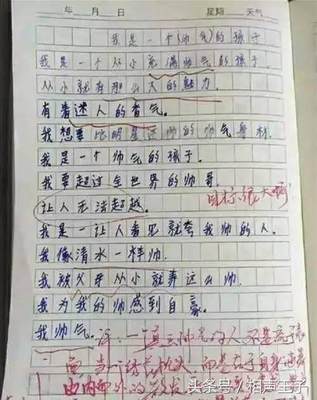 年 月 日 星期 天气
我是一个(帅气)的孩子
我是一个从小充满帅气的孩子.
从小就有那么大的魅力.
有着迷人的香气.
我想要 明星 帅的帅气身材
我是一个帅气的孩子.
我要超过全世界的帅哥.
目标很大啊
让人无法超越.
我是一让人看见就夸我帅的人.
我像清水一样帅.
我被父母从小就养这么帅.
我为我的帅感到自豪.
我帅气.
注:一个真正帅气的人不是
而是在于自身
由内而外的散发
头条号/相声王子